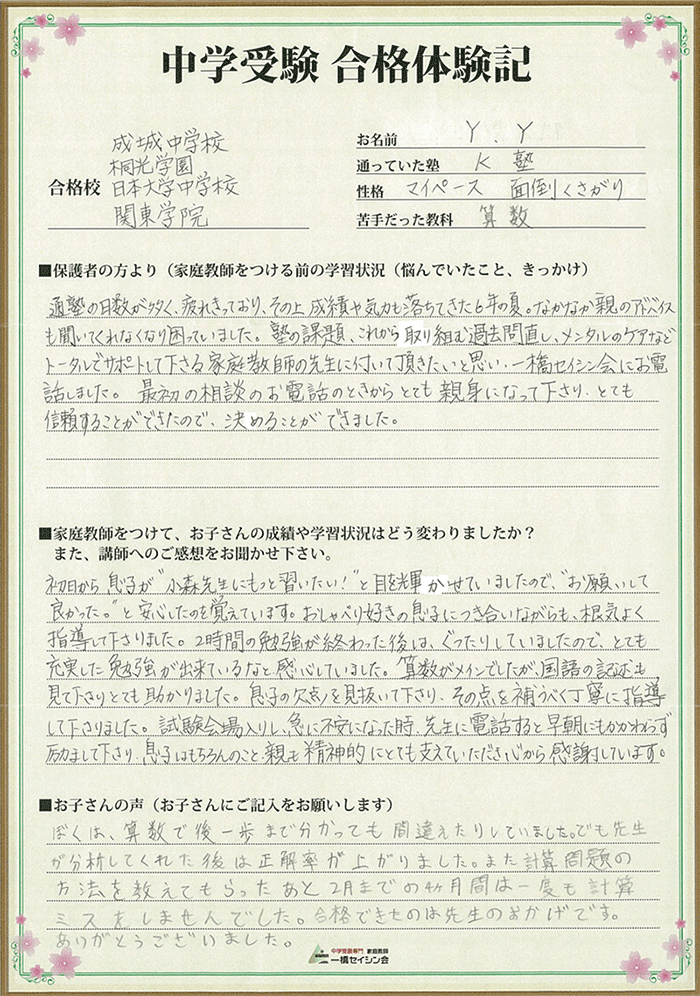 中学受験 合格体験記
合格校
成城中学校
桐光学園
日本大学中学校
関東学院
お名前 Y.Y
通っていた塾 K 塾
性格 マイペース 面倒くさがり
苦手だった教科 算数
■保護者の方より（家庭教師をつける前の学習状況（悩んでいたこと、きっかけ）
通塾の日数が多く、疲れきっており、その上成績や気力も落ちてきた6年の夏。なかなか親のアドバイス
も聞いてくれなくなり困っていました。塾の課題、これから取り組む過去問直し、メンタルのケアなど
トータルでサポートして下さる家庭教師の先生に付いて頂きたいと思い、一橋セイシン会にお電
話しました。最初の相談のお電話のときからとても親身になって下さり、とても
信頼することができたので、決めることができました。
■家庭教師をつけて、お子さんの成績や学習状況はどう変わりましたか？
また、講師へのご感想をお聞かせ下さい。
初日から息子が"小森先生にもっと習いたい！"と目を輝かせていましたので、"お願いして
良かった。"と安心したのを覚えています。おしゃべり好きの息子につき合いながらも、根気よく
指導して下さりました。2時間の勉強が終わった後は、ぐったりしていましたので、とても
充実した勉強が出来ているなと感心していました。算数がメインでしたが、国語の記述も
見て下さりとても助かりました。息子の欠点を見抜いて下さり、その点を補うべく丁寧に指導
して下さりました。試験会場入りし、急に不安になった時、先生に電話すると早朝にもかかわらず
励まして下さり、息子はもちろんのこと、親も精神的にとても支えていただき心から感謝しています。
■お子さんの声（お子さんにご記入をお願いします）
ぼくは、算数で後一歩まで分かっても間違えたりしていました。でも先生
が分析してくれた後は正解率が上がりました。また計算問題の
方法を教えてもらったあと2月までの4ヶ月間は一度も計算
ミスをしませんでした。合格できたのは先生のおかげです。
ありがとうございました。
中学受験専門 家庭教師
一橋セイシン会